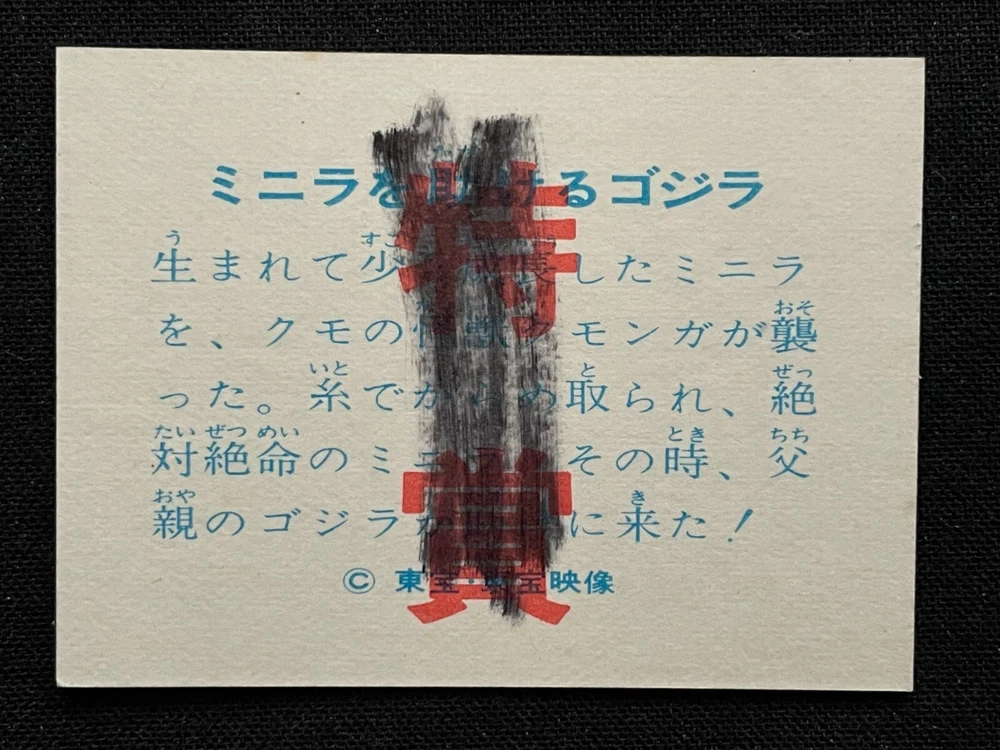 ミニラを助けるゴジラ
生まれて少し成長したミニラ
を、クモの怪獣クモンガが襲
った。糸でからめ取られ、絶
対絶命のミニラ。その時、父
親のゴジラが に来た！
© 東宝・東宝映像
特賞